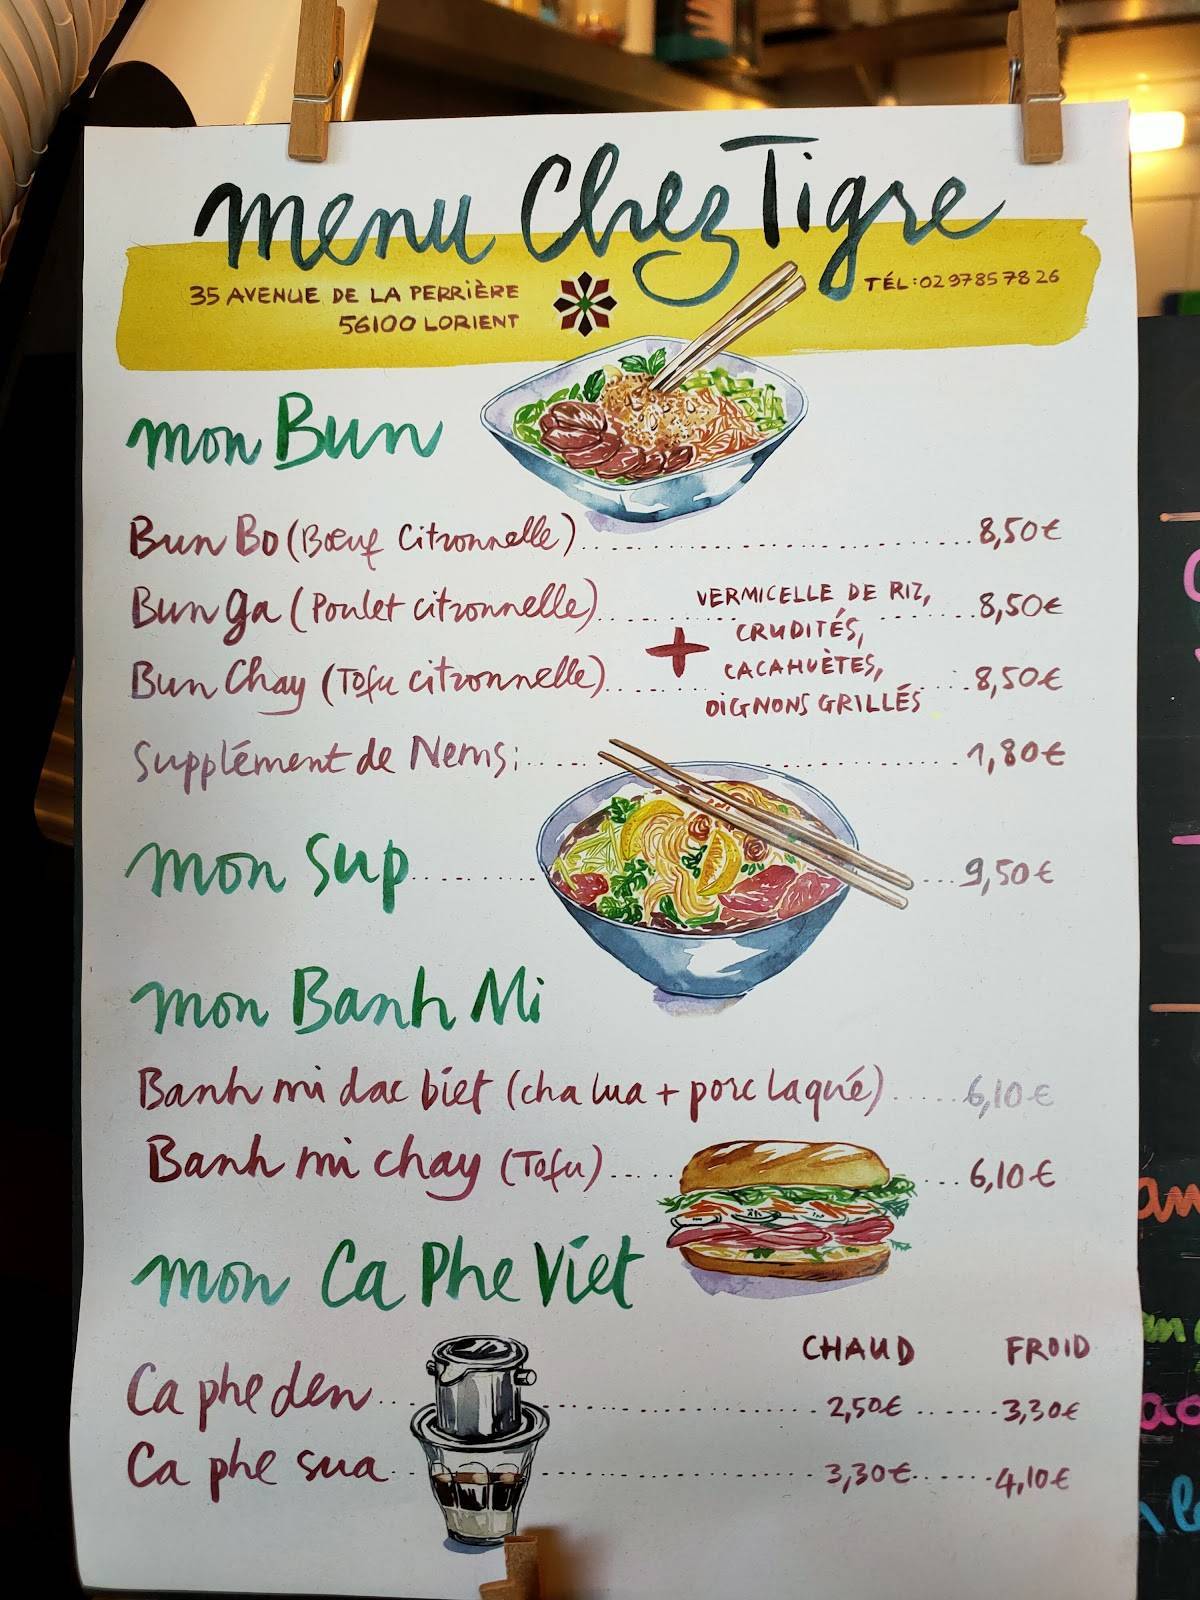 menu Chez Tigre
35 AVENUE DE LA PERRIÈRE
56100 LORIENT
TÉL : 02 97 85 78 26
mon Bun
Bun Bo (Bœuf Citronnelle) 8,50€
Bun ga (Poulet citronnelle) 8,50€
Bun Chay (Tofu citronnelle) 8,50€
+
VERMICELLE DE RIZ,
CRUDITÉS,
CACAHUÈTES,
OIGNONS GRILLÉS
Supplément de Nems: 1,80€
mon Sup 9,50€
mon Banh Mi
Banh mi dac biet (cha lua + porc laqué) 6,10€
Banh mi chay (Tofu) 6,10€
mon Ca Phe Viet
CHAUD FROID
Ca phe den 2,50€ 3,30€
Ca phe sua 3,30€ 4,10€